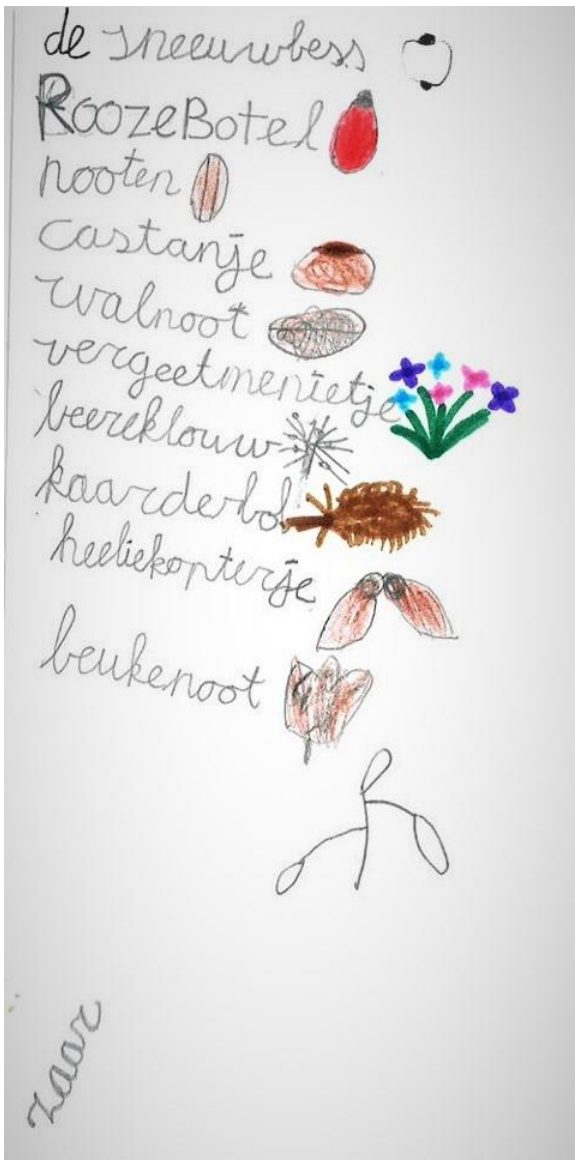 de sneeuwbess
RoozeBotel
nooten
castanje
walnoot
vergeetmenietje
beereklouw
kaarderbol
heeliekopterje
beukenoot
zaar